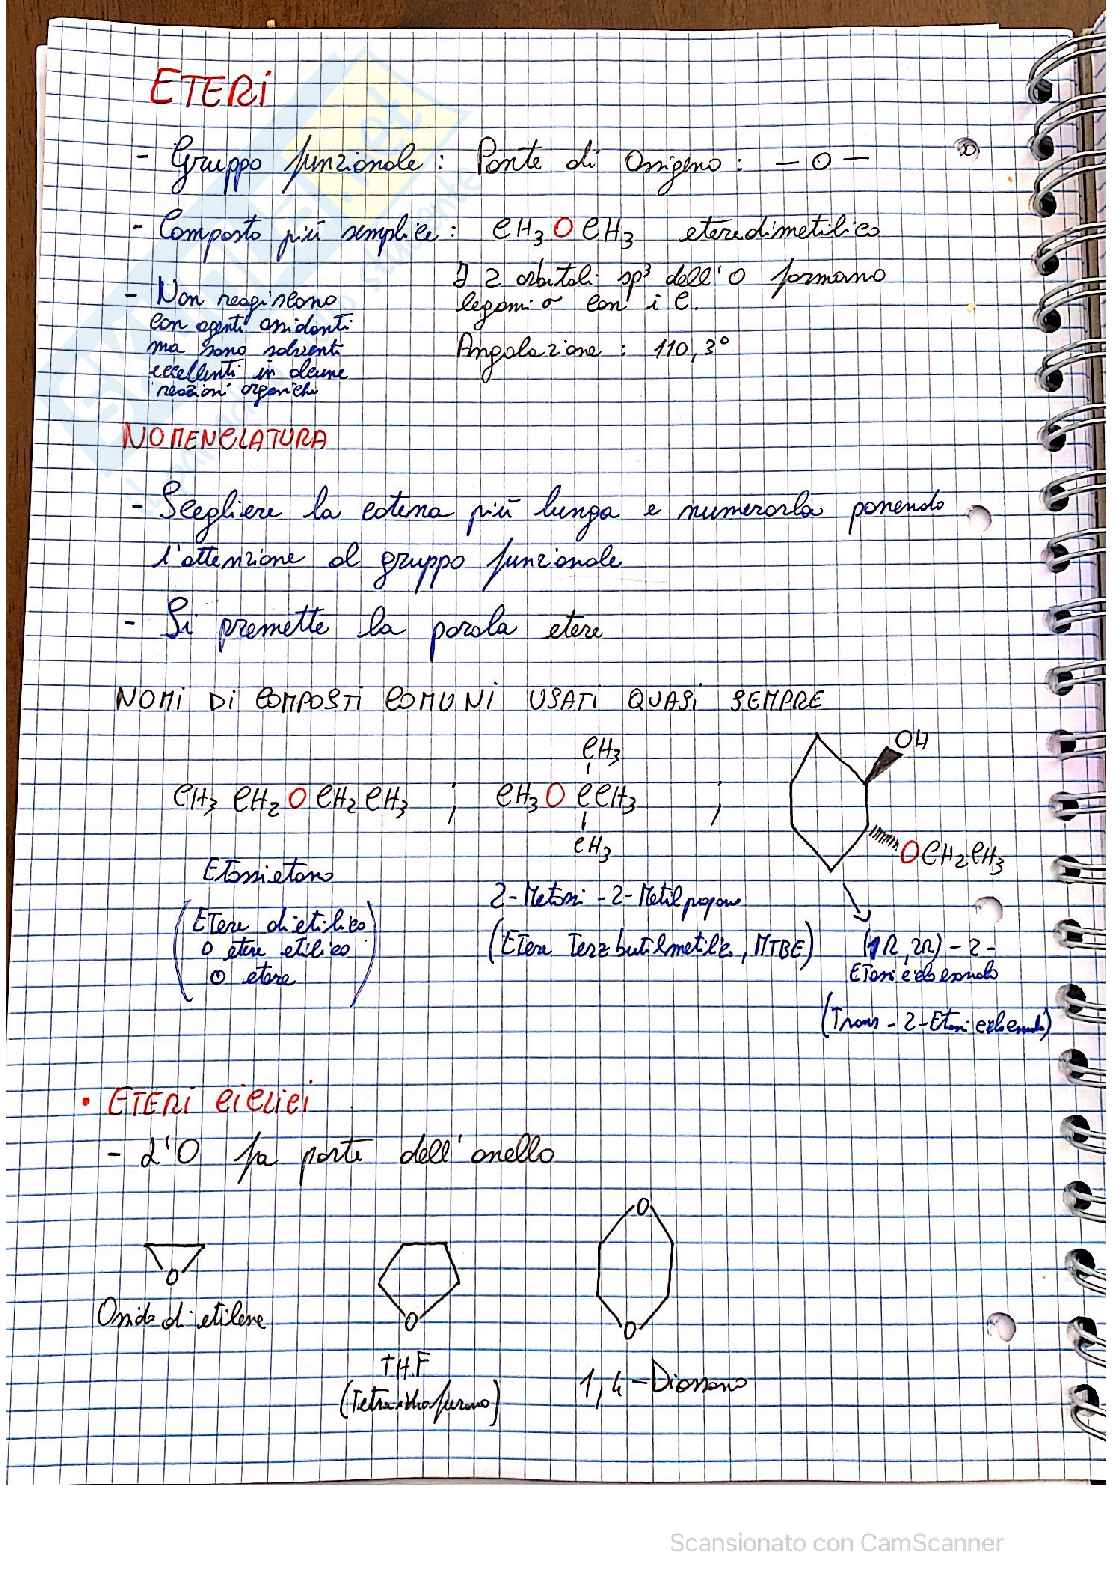 ETERi
- Gruppo funzionale : Ponte di Ossigeno : - O -
- Composto più semplice : CH3 O CH3 etere dimetilico
I 2 orbitali sp3 dell'O formano
legami σ con i C.
Angolazione : 110,3°
- Non reagiscono
con agenti ossidanti
ma sono solventi
eccellenti in alcune
reazioni organiche
NOMENCLATURA
- Scegliere la catena più lunga e numerarla ponendo
l'attenzione al gruppo funzionale
- Si premette la parola etere
NOMi Di COMPOSTi COMUNi USATi QUASi SEMPRE
CH3 CH2 O CH2 CH3 ;
CH3
CH3 O C CH3 ;
CH3
OH
OCH2CH3
Etossietano
(Etere dietilico
o etere etilico
o etere)
2-Metossi-2-Metilpropano
(Etere Terz butilmetilic, MTBE)
(1R,2R)-2-
Etossicicloesanolo
(Trans-2-Etossicicloesanolo)
• ETERi CiCLiCi
- L'O fa parte dell'anello
O
Ossido di etilene
O
T.H.F
(Tetraidrofurano)
O
O
1,4-Diossano
Scansionato con CamScanner